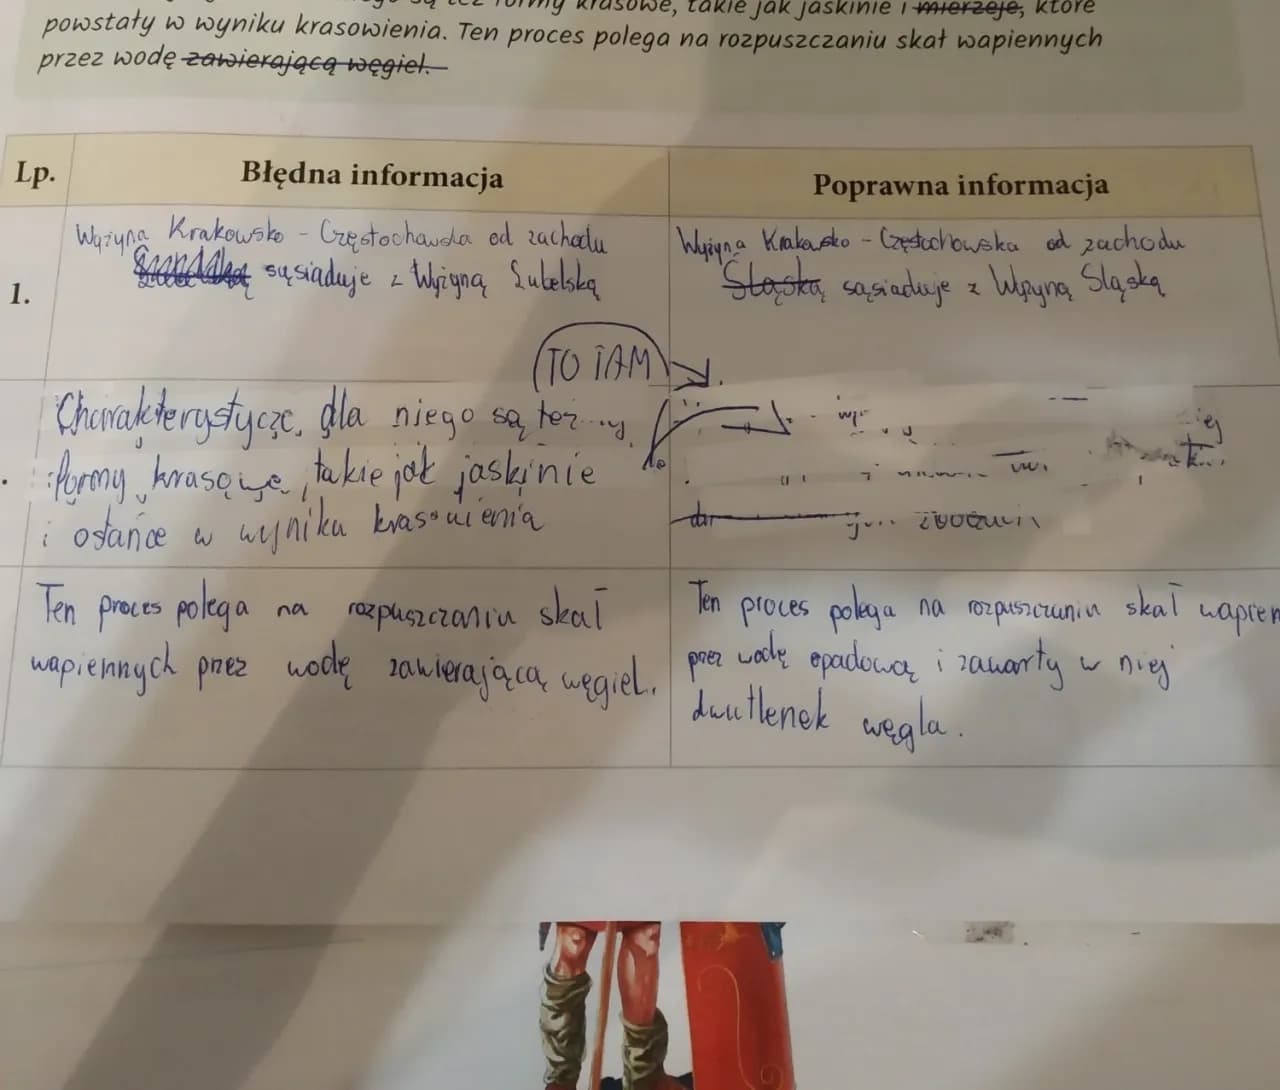 formy krasowe, takie jak jaskinie i mierzeje, które
powstały w wyniku krasowienia. Ten proces polega na rozpuszczaniu skał wapiennych
przez wodę zawierającą węgiel.
Lp. Błędna informacja Poprawna informacja
1.
Wyżyna Krakowsko - Częstochowska od zachodu
sąsiaduje z Wyżyną Lubelską
Wyżyna Krakowsko - Częstochowska od zachodu
Śląską sąsiaduje z Wyżyną Śląską
TO TAM
Charakterystycze, dla niego są też
formy krasowe, takie jak jaskinie
i ostańce w wyniku krasowienia
Ten proces polega na rozpuszczaniu skał
wapiennych przez wodę zawierającą węgiel.
Ten proces polega na rozpuszczaniu skał wapien
przez wodę opadową i zawarty w niej
dwutlenek węgla.